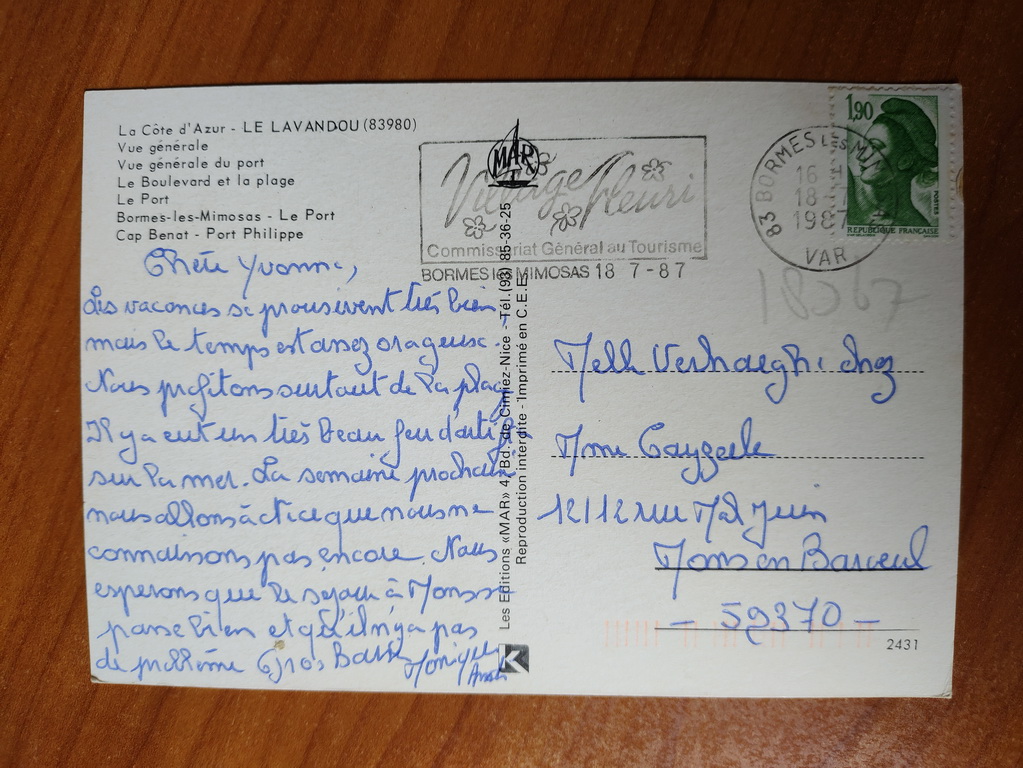 La Côte d'Azur - LE LAVANDOU (83980)
Vue générale
Vue générale du port
Le Boulevard et la plage
Le Port
Bormes-les-Mimosas - Le Port
Cap Benat - Port Philippe
MAR
Village fleuri
Commissariat Général au Tourisme
BORMES les MIMOSAS 18 7-87
83 BORMES LES MIM
16
18-7
1987
VAR
1,90
POSTES
REPUBLIQUE FRANÇAISE
18367
Chère Yvonne,
Les vacances se poursuivent très bien,
mais le temps est assez orageux.
Nous profitons surtout de la plage
Il y a eut un très beau feu d'artifice
sur la mer. La semaine prochaine
nous allons à
que nous ne
connaissons pas encore. Nous
esperons que le séjour à Mons se
passe bien et qu'il n'y a pas
de problème Gros Baisers Monique
Les Editions «MAR» 4 Bd. de Cimiez-Nice - Tél. (93) 85-36-25
Reproduction interdite - Imprimé en C.E.E.
Melle Verhaeghe chez
Mme
12/12 rue Mal Juin
Mons en Baroeul
- 59370 -
2431
K